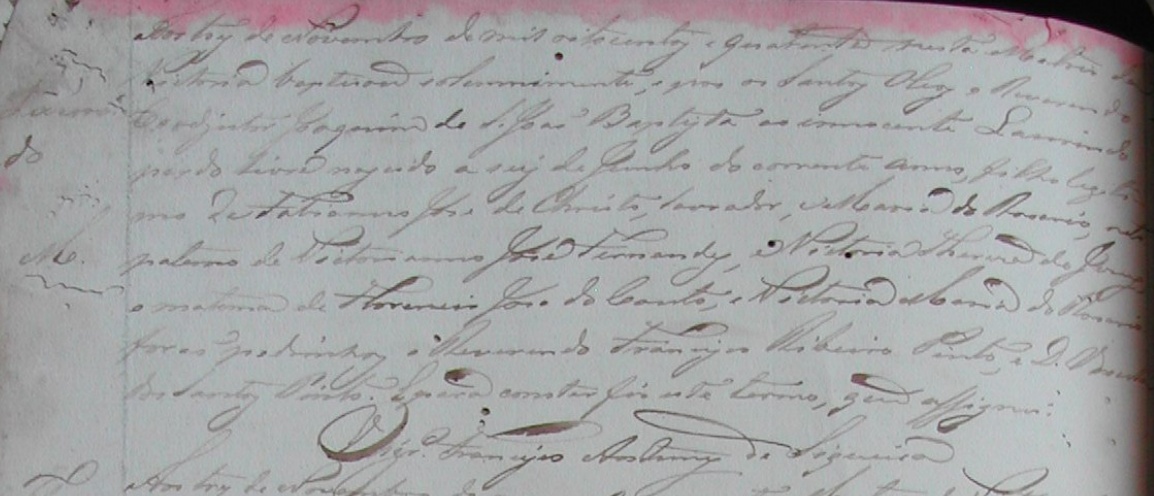 Aos trez de Novembro de mil oitocentos e quarenta nesta Matriz da
Victoria baptizou solemnimente, e pos os Santos Oleos o Reverendo
Laurin Coadjutor Joaquim de S. João Baptista ao innocente Laurindo
do pardo livre nascido a seis de Junho do corrente anno, filho legiti-
mo de Fabianno José de Christo, lavrador, e Maria do Rosario, neto
M. paterno de Victorianno José Fernandes, e Victoria Thereza de Jesus
e materno de Florencio José do Couto, e Victoria Maria do Rosario
forão padrinhos o Reverendo Francisco Ribeiro Pinto, e D.
dos Santos Pinto. E para constar fiz este termo, que assignei.
O Vigr.º Francisco Antunes de Siqueira
Aos trez de Novembro de